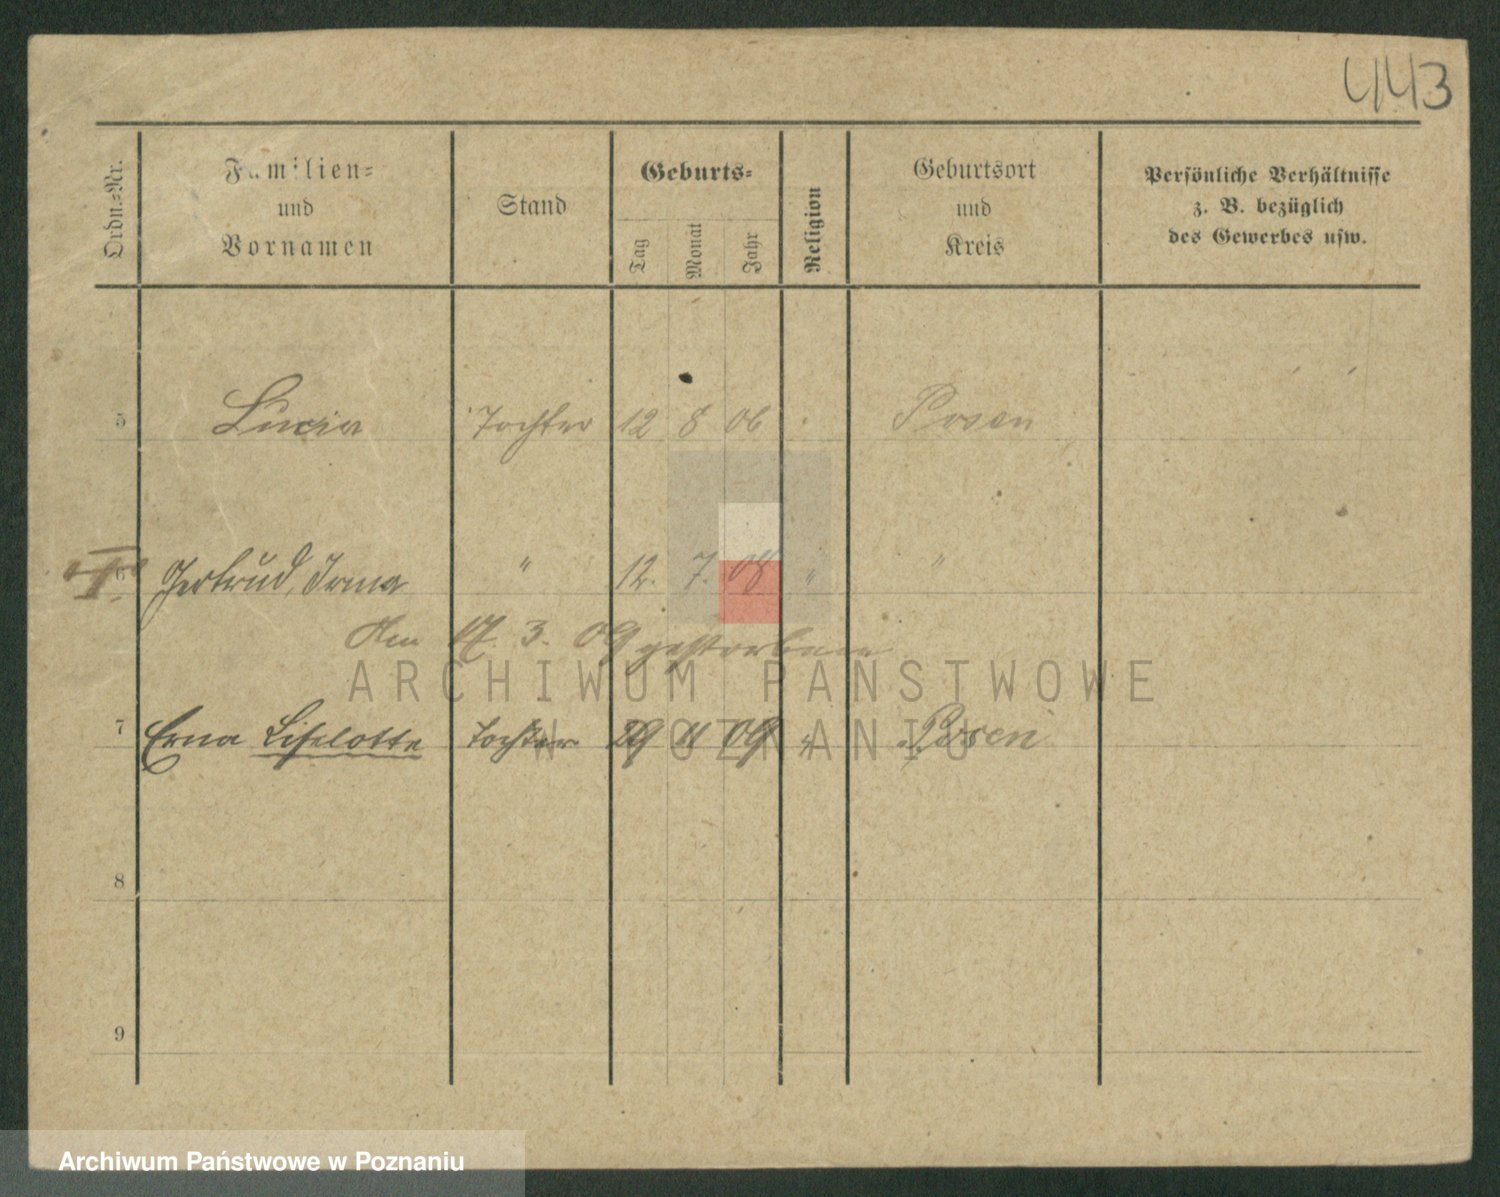 443
Ordn.-Nr.
Familien=
und
Vornamen
Stand
Geburts=
Tag
Monat
Jahr
Religion
Geburtsort
und
Kreis
Persönliche Verhältnisse
z. B. bezüglich
des Gewerbes usw.
5 Lucia Tochter 12 8 06 Posen
6 Gertrud, Irma " 12. 7. 08 " "
Am 17. 3. 09 gestorben
7 Erna Liselotte Tochter 29 11 09 " Posen
8
9
ARCHIWUM PAŃSTWOWE
W POZNANIU
Archiwum Państwowe w Poznaniu